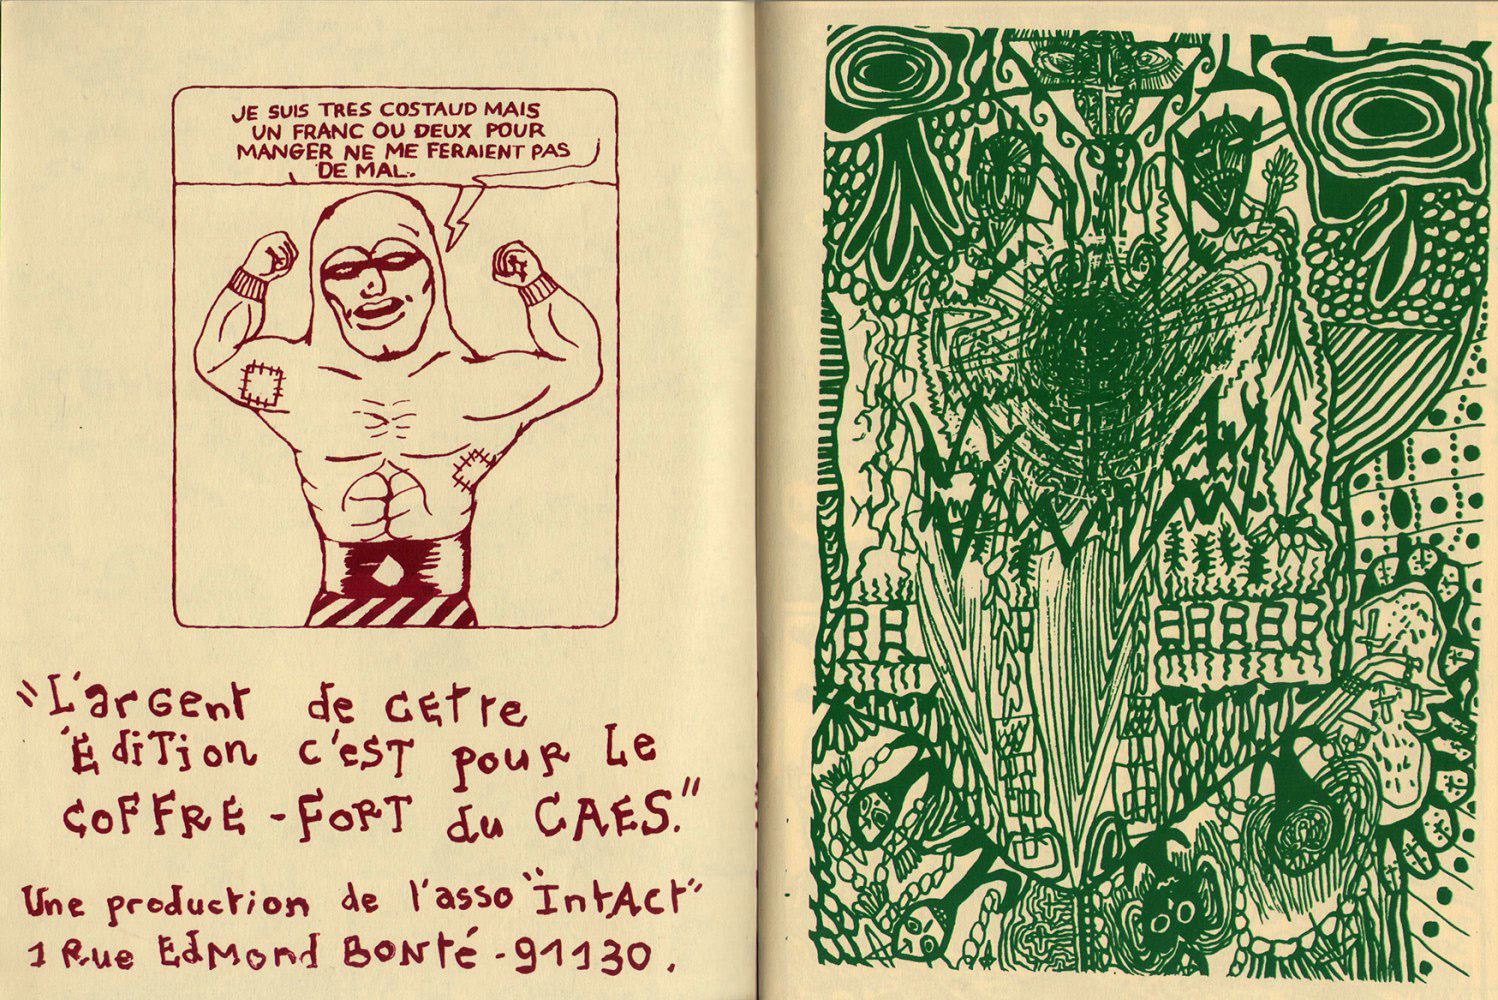 JE SUIS TRES COSTAUD MAIS
UN FRANC OU DEUX POUR
MANGER NE ME FERAIENT PAS
DE MAL.
"L'argent de cette
Édition c'est pour le
COFFRE-FORT du CAES."
Une production de l'asso "IntAct"
1 Rue EdMond BONté - 91130.